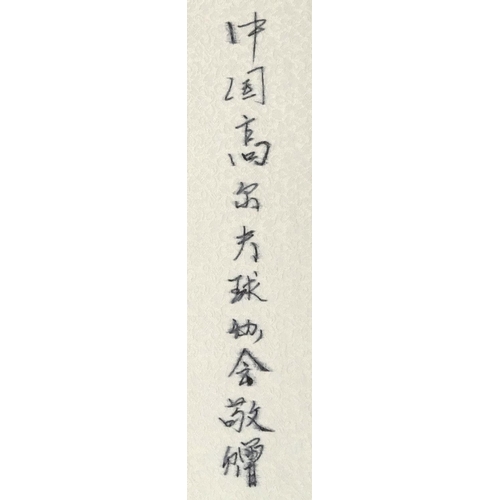 中国高尔夫球协会敬赠